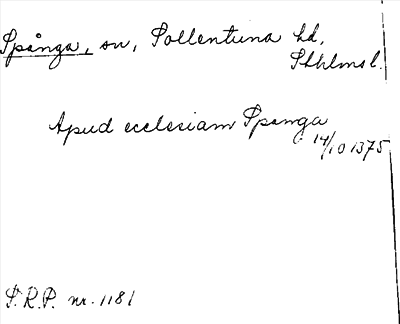 Spånga, sn, Sollentuna hd,
Sthlms l.
Apud ecclesiam Spanga
14/10 1375
S.R.P. nr. 1181